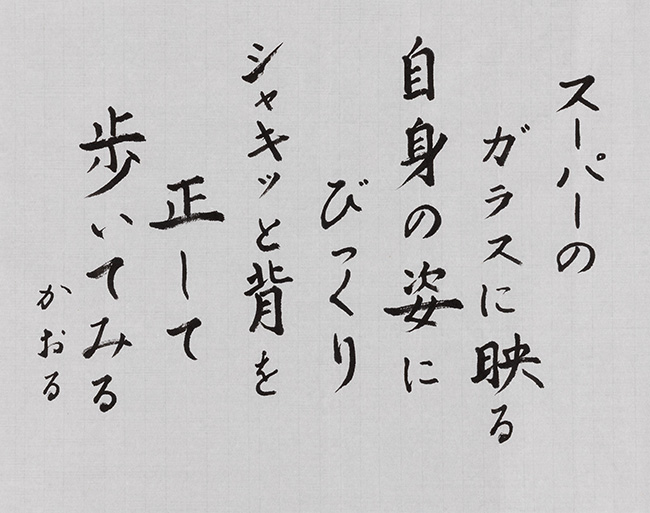 スーパーの
ガラスに映る
自身の姿に
びっくり
シャキッと背を
正して
歩いてみる
かおる